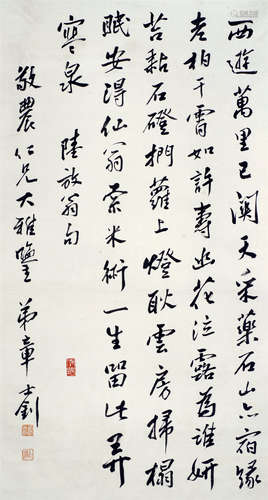 西遊萬里已關天采藥名山亦宿緣
老柏干霄如許壽幽花泣露為誰妍
苔黏石磴捫蘿上燈耿雲房掃榻
眠安得仙翁索米術一生留此弄
寒泉 陸放翁句
敬農仁兄大雅鑒 弟章士釗